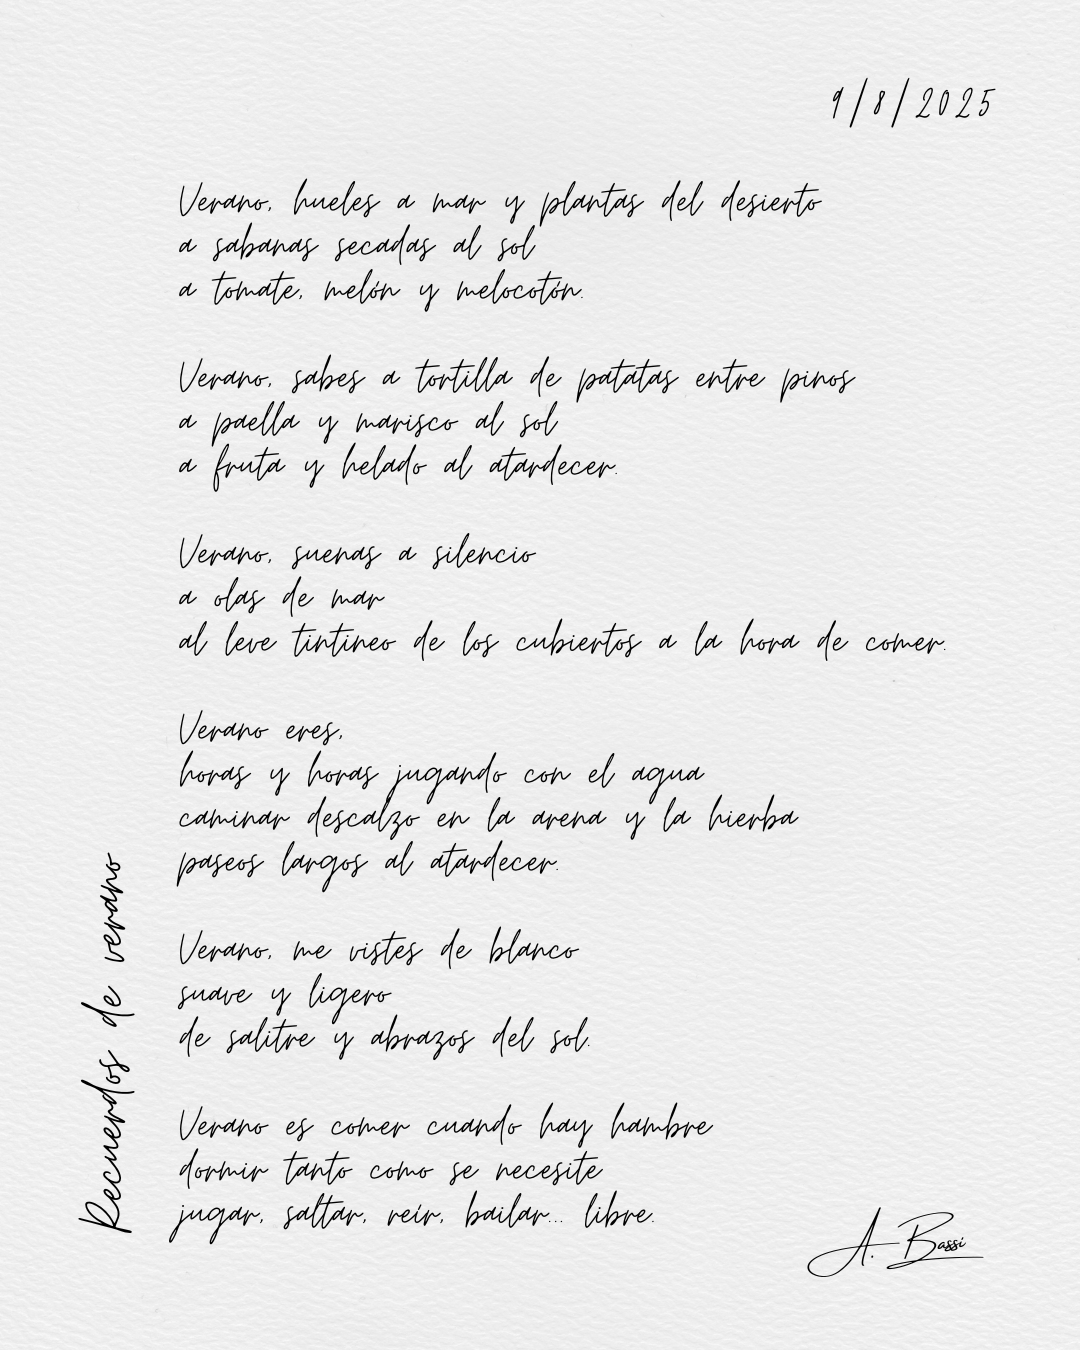 9/8/2025
Verano, hueles a mar y plantas del desierto
a sabanas secadas al sol
a tomate, melón y melocotón.
Verano, sabes a tortilla de patatas entre pinos
a paella y marisco al sol
a fruta y helado al atardecer.
Verano, suenas a silencio
a olas de mar
al leve tintineo de los cubiertos a la hora de comer.
Verano eres,
horas y horas jugando con el agua
caminar descalzo en la arena y la hierba
paseos largos al atardecer.
Verano, me vistes de blanco
suave y ligero
de salitre y abrazos del sol.
Verano es comer cuando hay hambre
dormir tanto como se necesite
jugar, saltar, reír, bailar... libre.
Recuerdos de verano
A. Bassi